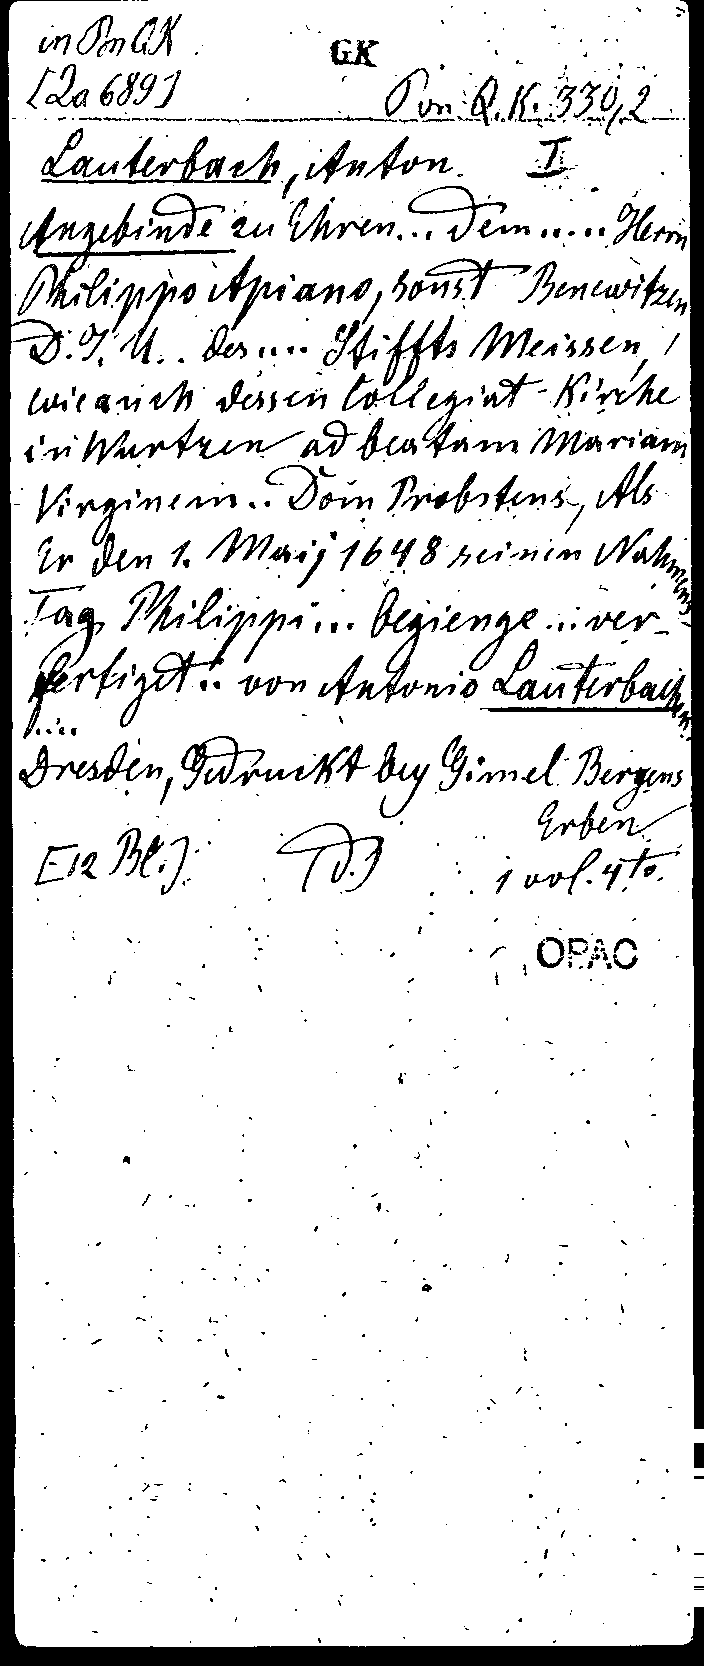 in Pon QK
GK
[Za 689]
Pon Q. K. 330,2
Lauterbach, Anton. I
Angebinde zu Ehren... dem..... Herrn
Philippo Apiano, sonst Benewitzen
D. J. U.. des.... Stiffts Meissen, /
wie auch dessen Collegiat-Kirche
in Wurtzen ad beatam Mariam
Virginem.. Dom Probstens, Als
Er den 1. Maij 1648 seinen Nahmens-
Tag Philippi... begienge... ver-
fertiget.. von Antonio Lauterbachen
....
Dresden, Gedruckt bey Gimel Bergens
Erben
[12 Bl.] (d.) 1 vol. 4to.
OPAC